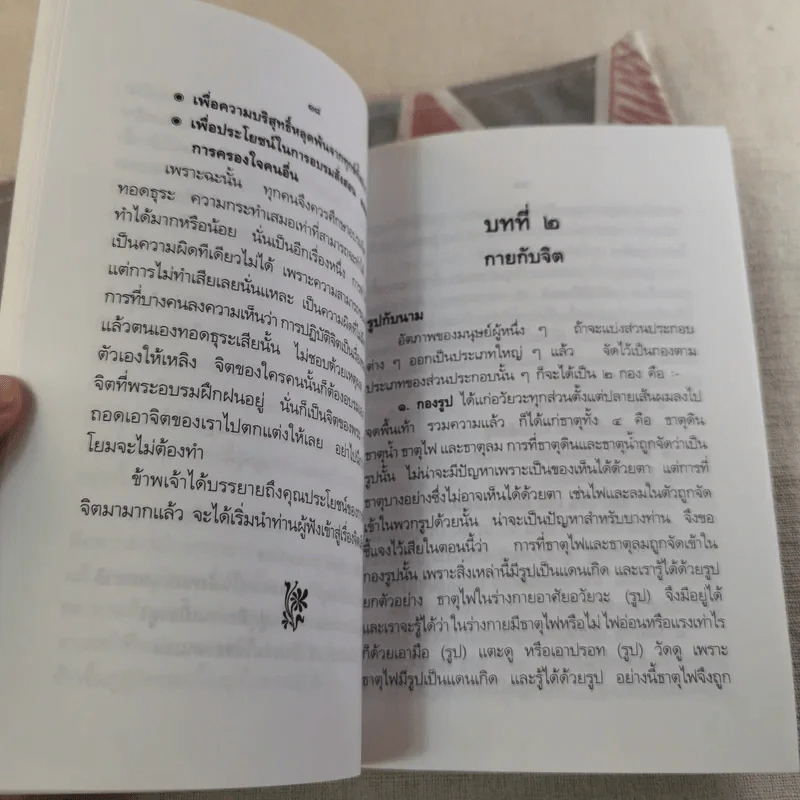 ๑๘
๏ เพื่อความบริสุทธิ์หลุดพ้นจาก
๏ เพื่อประโยชน์ในการอบรมสั่งสอน
การครองใจคนอื่น
เพราะฉะนั้น ทุกคนจึงควรศึกษา
ทอดธุระ ความกระทำเสมอเท่าที่สามารถ
ทำได้มากหรือน้อย นั่นเป็นอีกเรื่องหนึ่ง
เป็นความผิดทีเดียวไม่ได้ เพราะความสามารถ
แต่การไม่ทำเสียเลยนั่นแหละ เป็นความผิด
การที่บางคนลงความเห็นว่า การปฏิบัติจิตเป็น
แล้วตนเองทอดธุระเสียนั้น ไม่ชอบด้วย
ตัวเองให้เหลิง จิตของใครคนนั้นก็ต้องอบรม
จิตที่พระอบรมฝึกฝนอยู่ นั่นก็เป็นจิตของพระ
ถอดเอาจิตของเราไปตกแต่งให้เลย อย่าไป
โยมจะไม่ต้องทำ
ข้าพเจ้าได้บรรยายถึงคุณประโยชน์ของ
จิตมามากแล้ว จะได้เริ่มนำท่านผู้ฟังเข้าสู่เรื่อง
บทที่ ๒
กายกับจิต
รูปกับนาม
อัตภาพของมนุษย์ผู้หนึ่ง ๆ ถ้าจะแบ่งส่วนประกอบ
ต่าง ๆ ออกเป็นประเภทใหญ่ ๆ แล้ว จัดไว้เป็นกองตาม
ประเภทของส่วนประกอบนั้น ๆ ก็จะได้เป็น ๒ กอง คือ :-
๑. กองรูป ได้แก่อวัยวะทุกส่วนตั้งแต่ปลายเส้นผมลงไป
จดพื้นเท้า รวมความแล้ว ก็ได้แก่ธาตุทั้ง ๔ คือ ธาตุดิน
ธาตุน้ำ ธาตุไฟ และธาตุลม การที่ธาตุดินและธาตุน้ำถูกจัดว่าเป็น
รูปนั้น ไม่น่าจะมีปัญหาเพราะเป็นของเห็นได้ด้วยตา แต่การที่
ธาตุบางอย่างซึ่งไม่อาจเห็นได้ด้วยตา เช่นไฟและลมในตัวถูกจัด
เข้าในพวกรูปด้วยนั้น น่าจะเป็นปัญหาสำหรับบางท่าน จึงขอ
ชี้แจงไว้เสียในตอนนี้ว่า การที่ธาตุไฟและธาตุลมถูกจัดเข้าใน
กองรูปนั้น เพราะสิ่งเหล่านี้มีรูปเป็นแดนเกิด และเรารู้ได้ด้วยรูป
ยกตัวอย่าง ธาตุไฟในร่างกายอาศัยอวัยวะ (รูป) จึงมีอยู่ได้
และเราจะรู้ได้ว่า ในร่างกายมีธาตุไฟหรือไม่ ไฟอ่อนหรือแรงเท่าไร
ก็ด้วยเอามือ (รูป) แตะดู หรือเอาปรอท (รูป) วัดดู เพราะ
ธาตุไฟมีรูปเป็นแดนเกิด และรู้ได้ด้วยรูป อย่างนี้ธาตุไฟจึงถูก